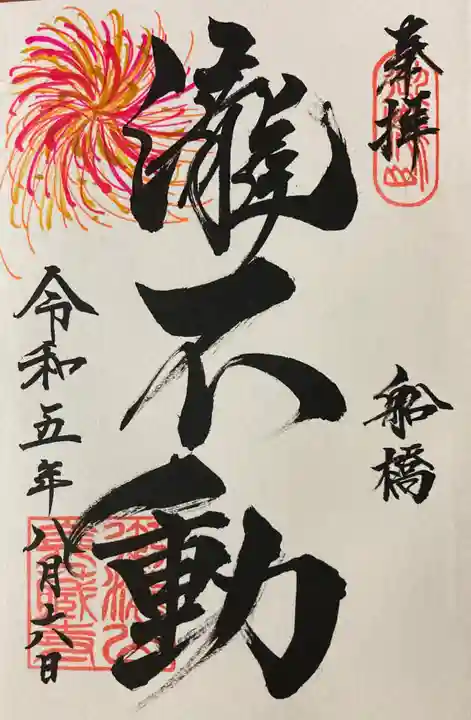 奉拝
船橋
瀧不動
令和五年八月十六日